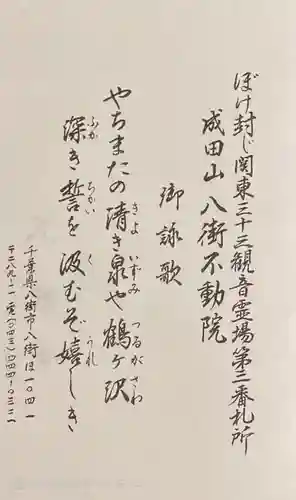 ぼけ封じ関東三十三観音霊場第三番札所
成田山八街不動院
御詠歌
やちまたの清き泉や鶴ヶ沢
きよ いずみ つるがさわ
深き誓を汲むぞ嬉しき
ふか ちかい く うれ
千葉県八街市八街ほ一〇四一
〒二八九-一一 電(〇四三)四四四-〇三二一